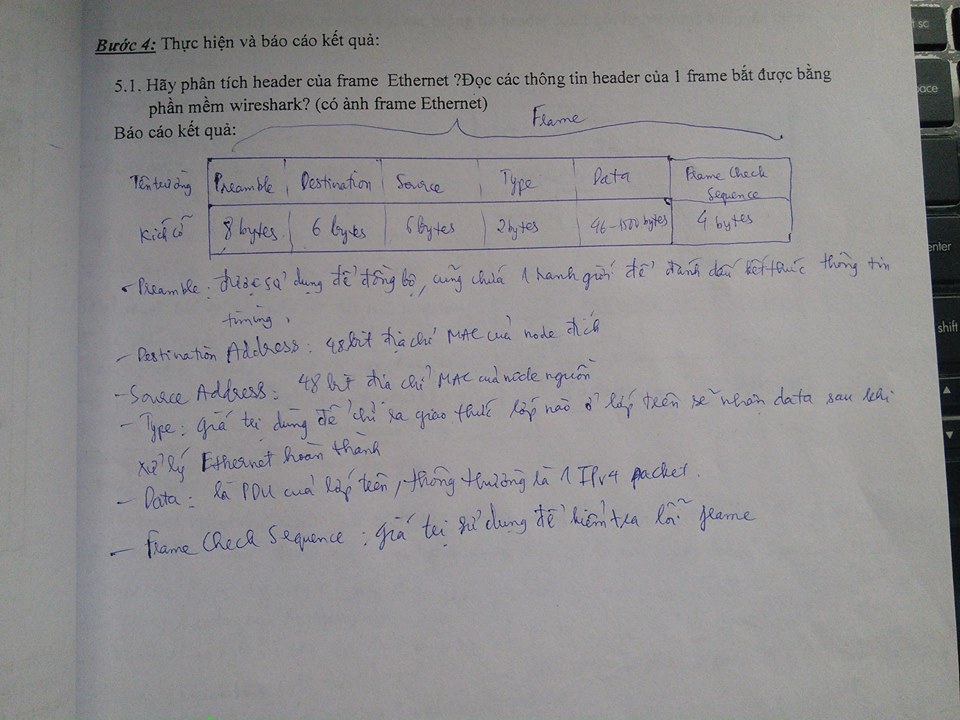 Bước 4: Thực hiện và báo cáo kết quả:
5.1. Hãy phân tích header của frame Ethernet ?Đọc các thông tin header của 1 frame bắt được bằng
phần mềm wireshark? (có ảnh frame Ethernet)
Báo cáo kết quả:
Frame
Tên trường Preamble Destination Source Type Data Frame Check
Sequence
Kích cỡ 8 bytes 6 bytes 6 bytes 2 bytes 46-1500 bytes 4 bytes
- Preamble: được sử dụng để đồng bộ, cũng chứa 1 ranh giới để đánh dấu kết thúc thông tin
timing.
- Destination Address: 48 bit địa chỉ MAC của node đích
- Source Address: 48 bit địa chỉ MAC của node nguồn
- Type: giá trị dùng để chỉ ra giao thức lớp nào ở lớp trên sẽ nhận data sau khi
xử lý Ethernet hoàn thành
- Data: là PDU của lớp trên, thông thường là 1 IPv4 packet.
- Frame Check Sequence: giá trị sử dụng để kiểm tra lỗi frame
sc
pace
enter
shift